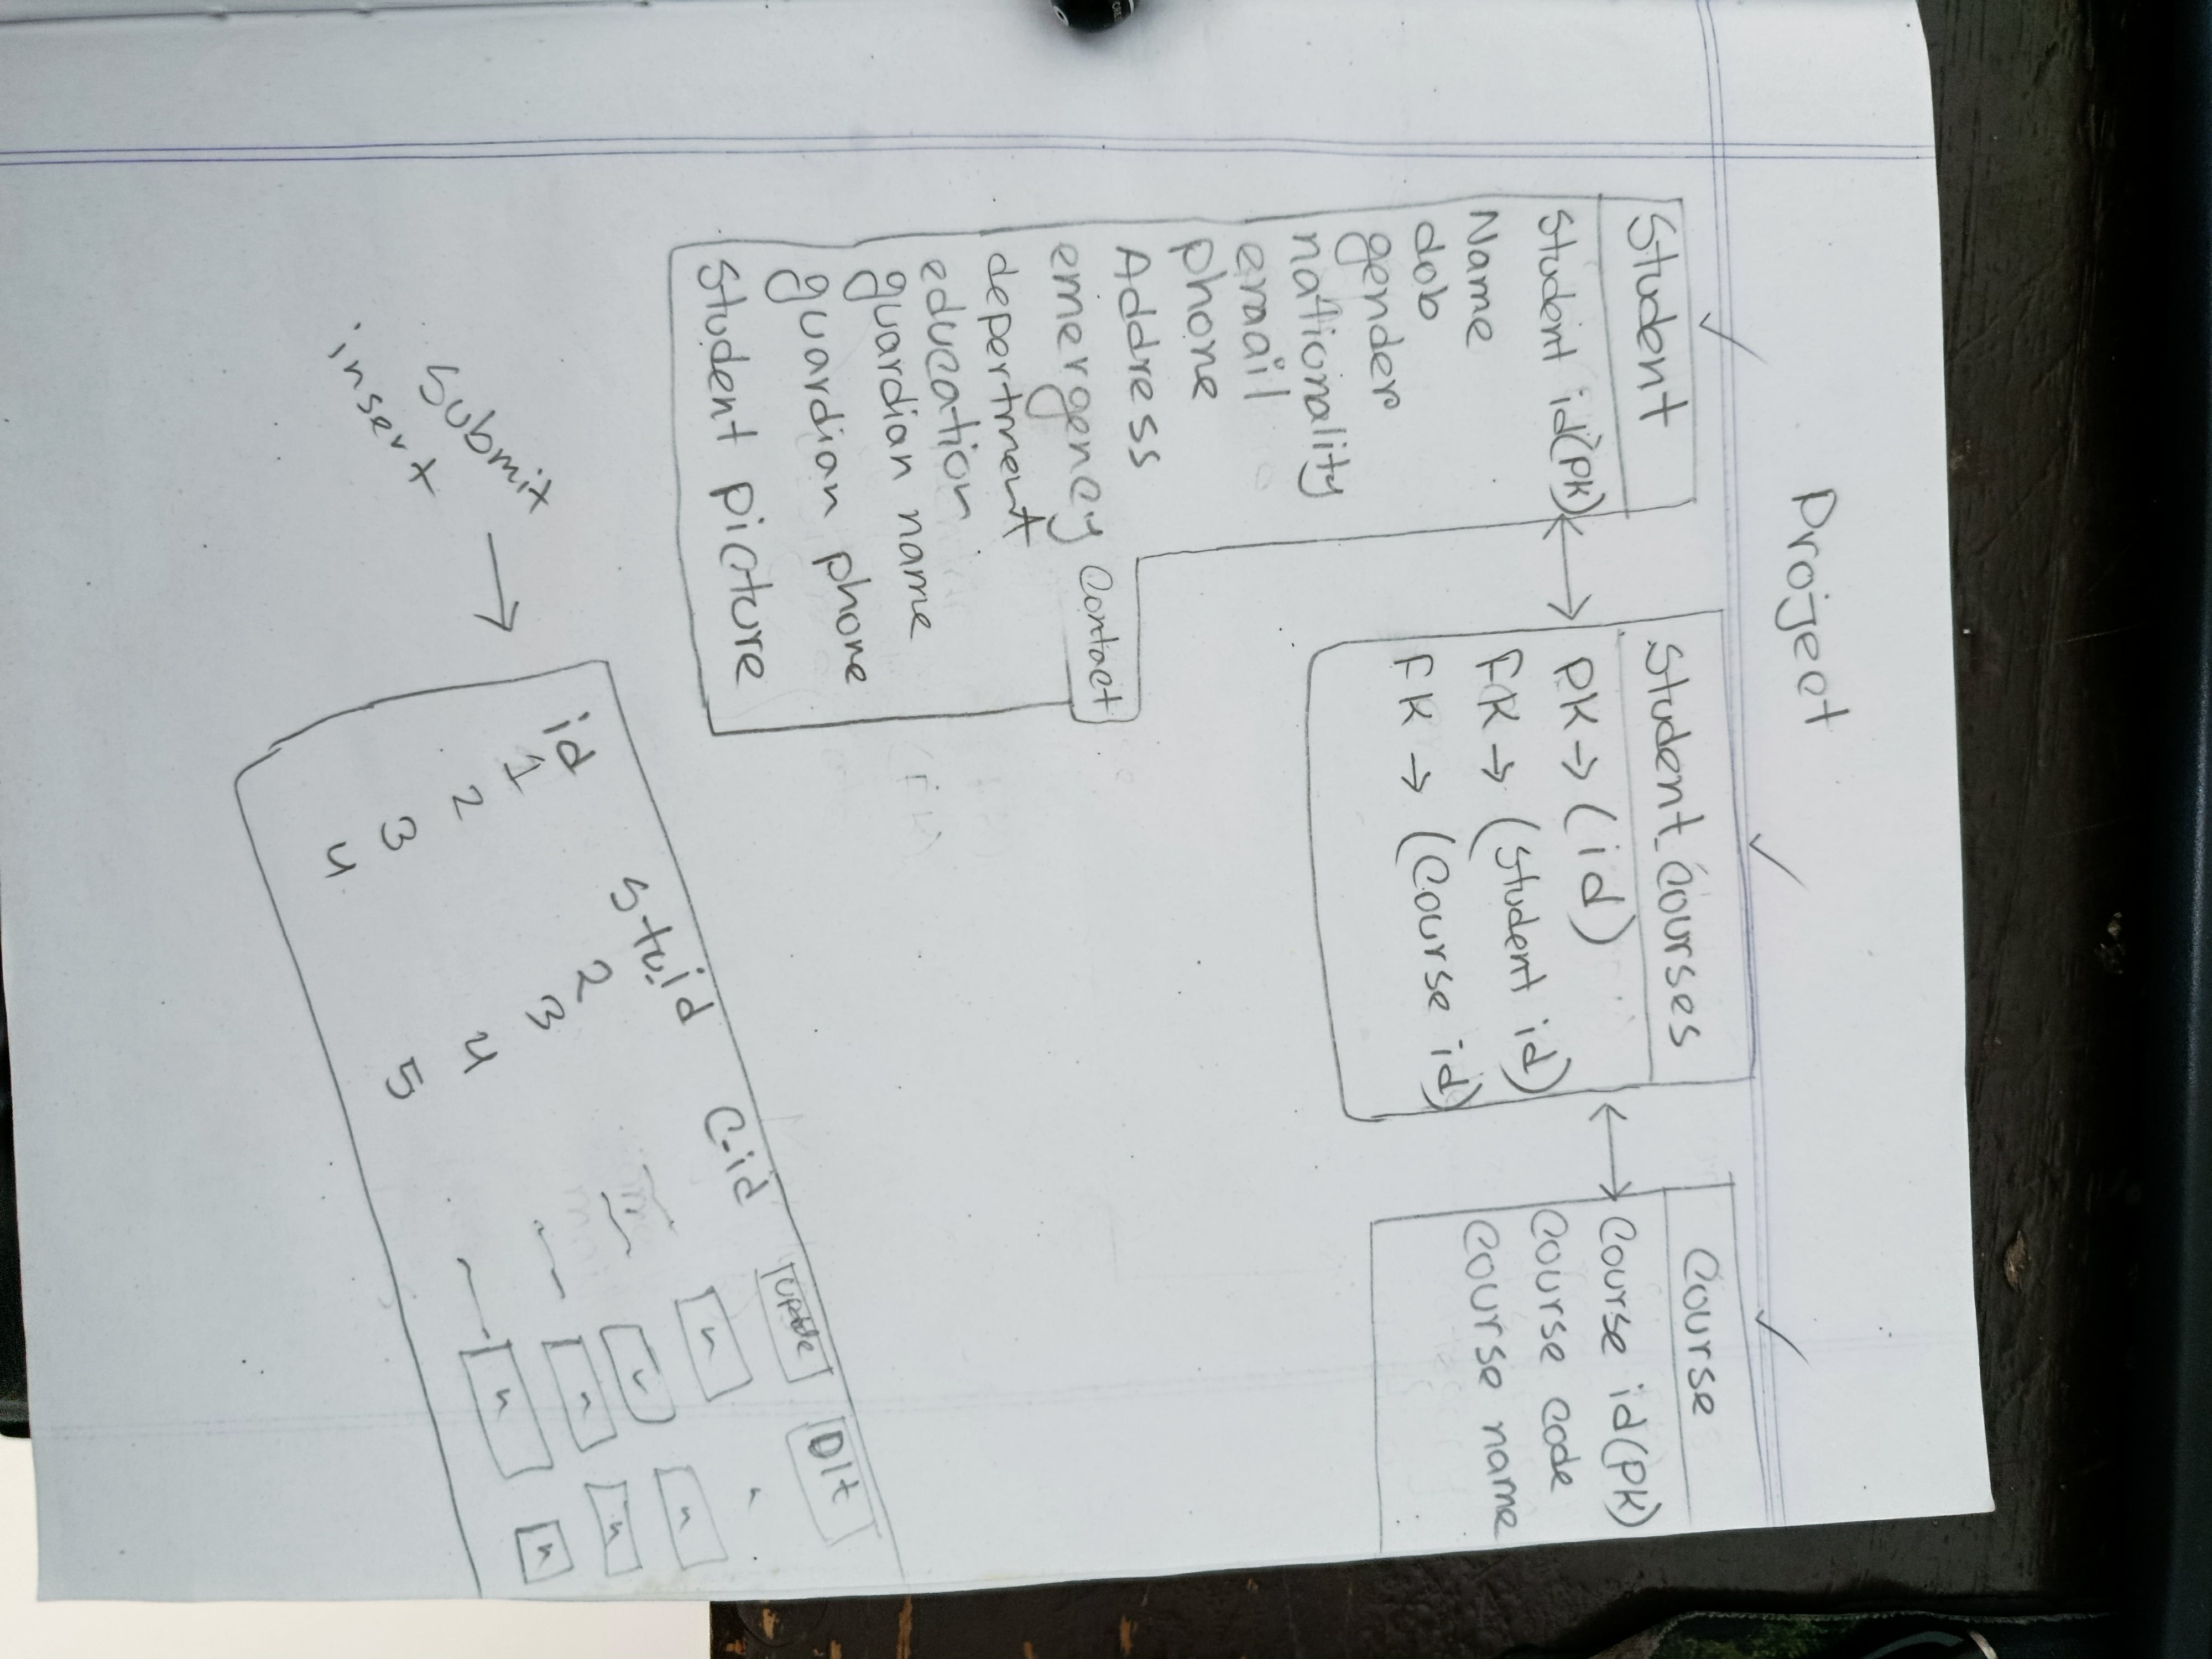 Project
Student
Student id(PK)
Name
dob
gender
nationality
email
phone
Address
emergency Contact
depertment
education
guardian name
guardian phone
Student picture
Student_Courses
PK → (id)
FK → (Student id)
FK → (Course id)
Course
Course id(PK)
Course code
Course name
Submit
insert
id Stu_id C-id Dlt
1 2
2 3
3 4
4 5